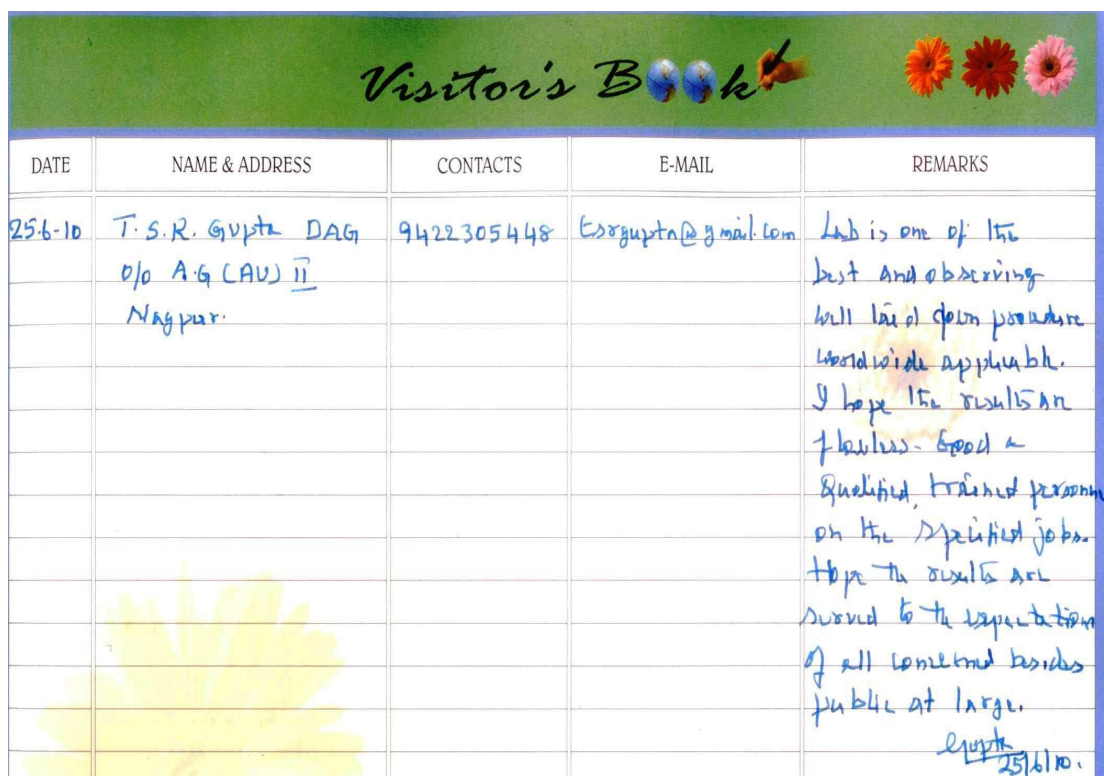 Visitor's Book
DATE NAME & ADDRESS CONTACTS E-MAIL REMARKS
25-6-10 T.S.R. Gupta DAG 9422305448 tsrgupta@gmail.com Lab is one of the
O/o A.G (AU) II best and observing
Nagpur. well laid down procedure
worldwide applicable.
I hope the results are
flawless. Good &
Qualified, trained personne
on the specified jobs.
Hope the results are
served to the expectation
of all concerned besides
public at large.
Gupta
25/6/10.